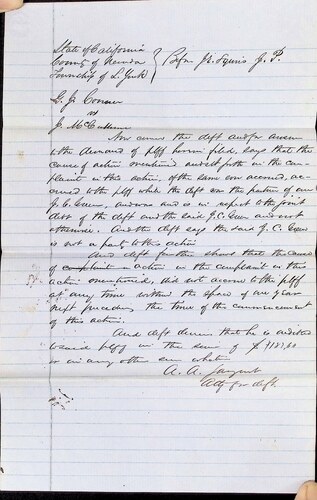 State of California
County of Nevada } Before Jr. Squires J. P.
Township of L. York

G. J. Conner
vs
J. McCullum
Now comes the deft and for answer
to the demand of plff herein filed, says that the
cause of action mentioned and set forth in the com-
plaint in this action, if the same ever accrued, ac-
crued to the plff while the deft was the partner of one
J. C. Green, and was and is in respect to the joint
debt of the deft and the said J. C. Green and not
otherwise. And the deft says the said J. C. Green
is not a party to this action
And deft further shows that the cause
of complaint in action in the complaint in this
action mentioned, did not accrue to the plff
at any time within the space of one year
next preceding the time of the commencement
of this action.
And deft denies that he is indebted
to said plff in the sum of $
or in any other sum whatever
A. A. Sargent
Atty for deft